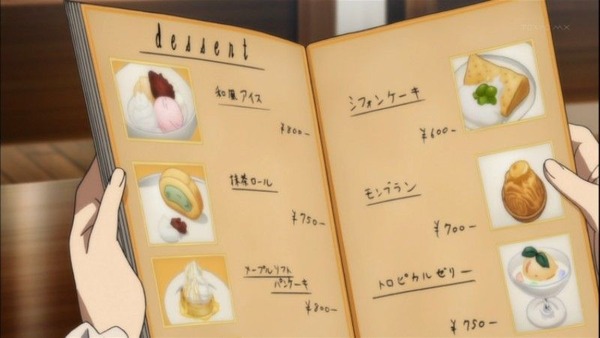 dessert
和風アイス
¥800-
抹茶ロール
¥750-
メープルソフト
パンケーキ
¥800-
シフォンケーキ
¥600-
モンブラン
¥700-
トロピカルゼリー
¥750-